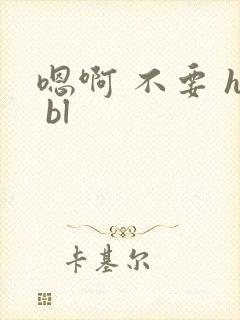 嗯啊 不要 h
bl
卡基尔